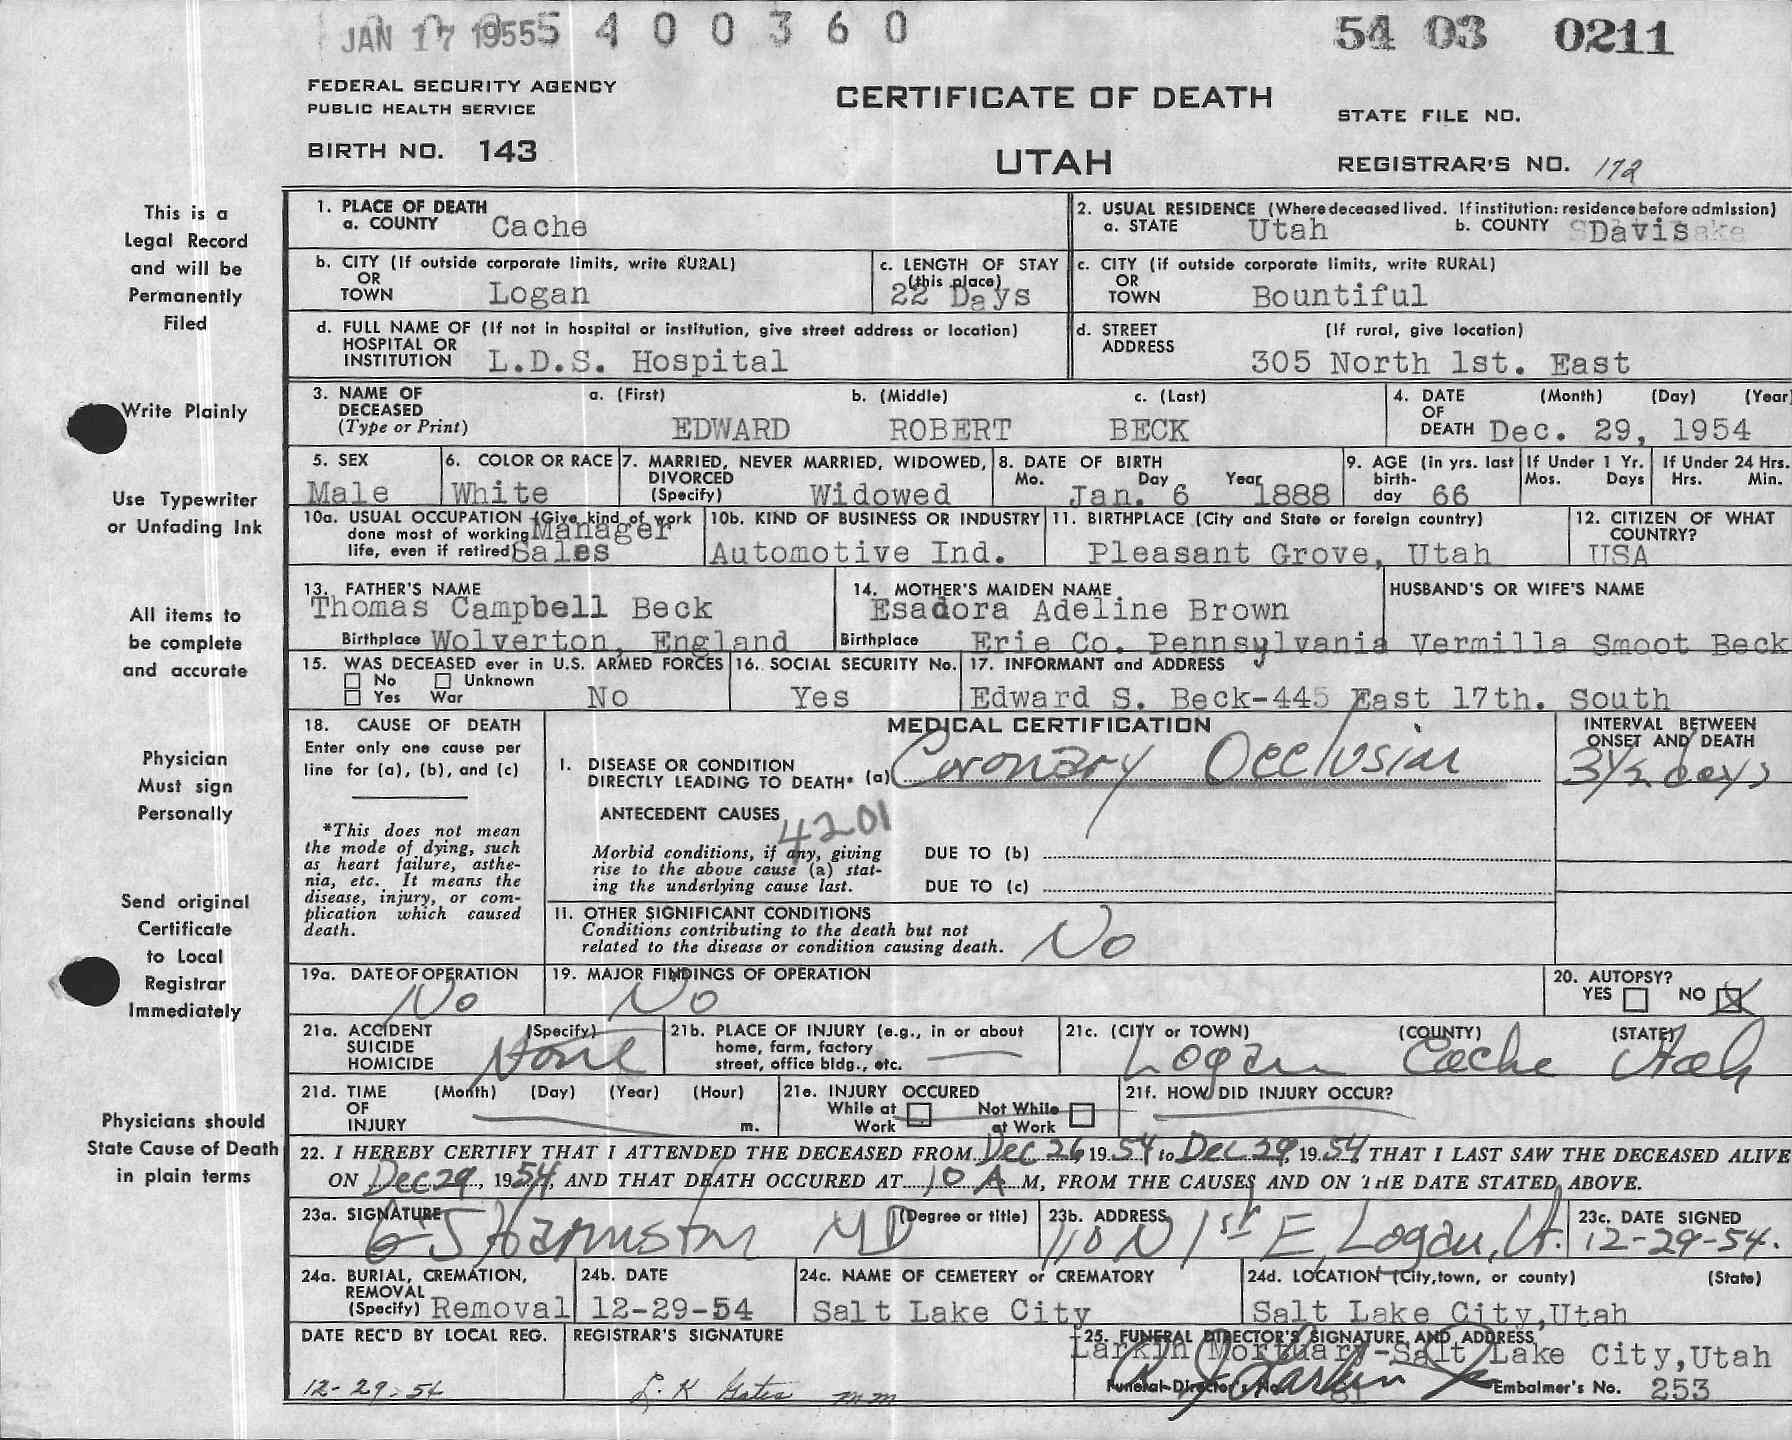 JAN 17 1955 5 4 0 0 3 6 0
54 03 0211
FEDERAL SECURITY AGENCY
PUBLIC HEALTH SERVICE
BIRTH NO. 143
CERTIFICATE OF DEATH
UTAH
STATE FILE NO.
REGISTRAR'S NO. 172
This is a
Legal Record
and will be
Permanently
Filed
Write Plainly
Use Typewriter
or Unfading Ink
All items to
be complete
and accurate
Physician
Must sign
Personally
Send original
Certificate
to Local
Registrar
Immediately
Physicians should
State Cause of Death
in plain terms
1. PLACE OF DEATH
a. COUNTY Cache
2. USUAL RESIDENCE (Where deceased lived. If institution: residence before admission)
a. STATE Utah b. COUNTY Davis
b. CITY (If outside corporate limits, write RURAL)
OR
TOWN Logan
c. LENGTH OF STAY
(this place)
22 Days
c. CITY (if outside corporate limits, write RURAL)
OR
TOWN Bountiful
d. FULL NAME OF (If not in hospital or institution, give street address or location)
HOSPITAL OR
INSTITUTION L.D.S. Hospital
d. STREET (If rural, give location)
ADDRESS
305 North 1st. East
3. NAME OF a. (First) b. (Middle) c. (Last)
DECEASED
(Type or Print) EDWARD ROBERT BECK
4. DATE (Month) (Day) (Year)
OF
DEATH Dec. 29, 1954
5. SEX
Male
6. COLOR OR RACE
White
7. MARRIED, NEVER MARRIED, WIDOWED,
DIVORCED
(Specify) Widowed
8. DATE OF BIRTH
Mo. Day Year
Jan. 6 1888
9. AGE (in yrs. last
birth-
day 66
If Under 1 Yr.
Mos. Days
If Under 24 Hrs.
Hrs. Min.
10a. USUAL OCCUPATION (Give kind of work
done most of working Manager
life, even if retired Sales
10b. KIND OF BUSINESS OR INDUSTRY
Automotive Ind.
11. BIRTHPLACE (City and State or foreign country)
Pleasant Grove, Utah
12. CITIZEN OF WHAT
COUNTRY?
USA
13. FATHER'S NAME
Thomas Campbell Beck
Birthplace Wolverton, England
14. MOTHER'S MAIDEN NAME
Esadora Adeline Brown
Birthplace Erie Co. Pennsylvania
HUSBAND'S OR WIFE'S NAME
Vermilla Smoot Beck
15. WAS DECEASED ever in U.S. ARMED FORCES
No Unknown
Yes War No
16. SOCIAL SECURITY No.
Yes
17. INFORMANT and ADDRESS
Edward S. Beck-445 East 17th. South
18. CAUSE OF DEATH
Enter only one cause per
line for (a), (b), and (c)
*This does not mean
the mode of dying, such
as heart failure, asthe-
nia, etc. It means the
disease, injury, or com-
plication which caused
death.
MEDICAL CERTIFICATION
I. DISEASE OR CONDITION
DIRECTLY LEADING TO DEATH* (a) Coronary Occlusion
INTERVAL BETWEEN
ONSET AND DEATH
3 1/2 days
ANTECEDENT CAUSES
4201
Morbid conditions, if any, giving
rise to the above cause (a) stat-
ing the underlying cause last.
DUE TO (b)
DUE TO (c)
II. OTHER SIGNIFICANT CONDITIONS
Conditions contributing to the death but not
related to the disease or condition causing death. No
19a. DATE OF OPERATION
No
19. MAJOR FINDINGS OF OPERATION
No
20. AUTOPSY?
YES NO X
21a. ACCIDENT (Specify)
SUICIDE
HOMICIDE None
21b. PLACE OF INJURY (e.g., in or about
home, farm, factory
street, office bldg., etc.
21c. (CITY or TOWN) (COUNTY) (STATE)
Logan Cache Utah
21d. TIME (Month) (Day) (Year) (Hour)
OF
INJURY m.
21e. INJURY OCCURED
While at Not While
Work at Work
21f. HOW DID INJURY OCCUR?
22. I HEREBY CERTIFY THAT I ATTENDED THE DECEASED FROM Dec 26, 1954 to Dec 29, 1954, THAT I LAST SAW THE DECEASED ALIVE
ON Dec 29, 1954, AND THAT DEATH OCCURED AT 10 A M, FROM THE CAUSES AND ON THE DATE STATED ABOVE.
23a. SIGNATURE (Degree or title)
Harmston MD
23b. ADDRESS
110 N 1st E, Logan, Ut.
23c. DATE SIGNED
12-29-54.
24a. BURIAL, CREMATION,
REMOVAL
(Specify) Removal
24b. DATE
12-29-54
24c. NAME OF CEMETERY or CREMATORY
Salt Lake City
24d. LOCATION (City, town, or county) (State)
Salt Lake City, Utah
DATE REC'D BY LOCAL REG.
12-29-54
REGISTRAR'S SIGNATURE
25. FUNERAL DIRECTOR'S SIGNATURE AND ADDRESS
Larkin Mortuary-Salt Lake City, Utah
Funeral Director's No. 81 Embalmer's No. 253